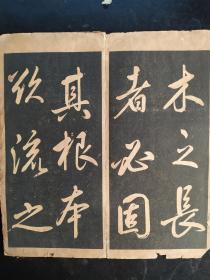 木之長
者必固
其根本
欲流之